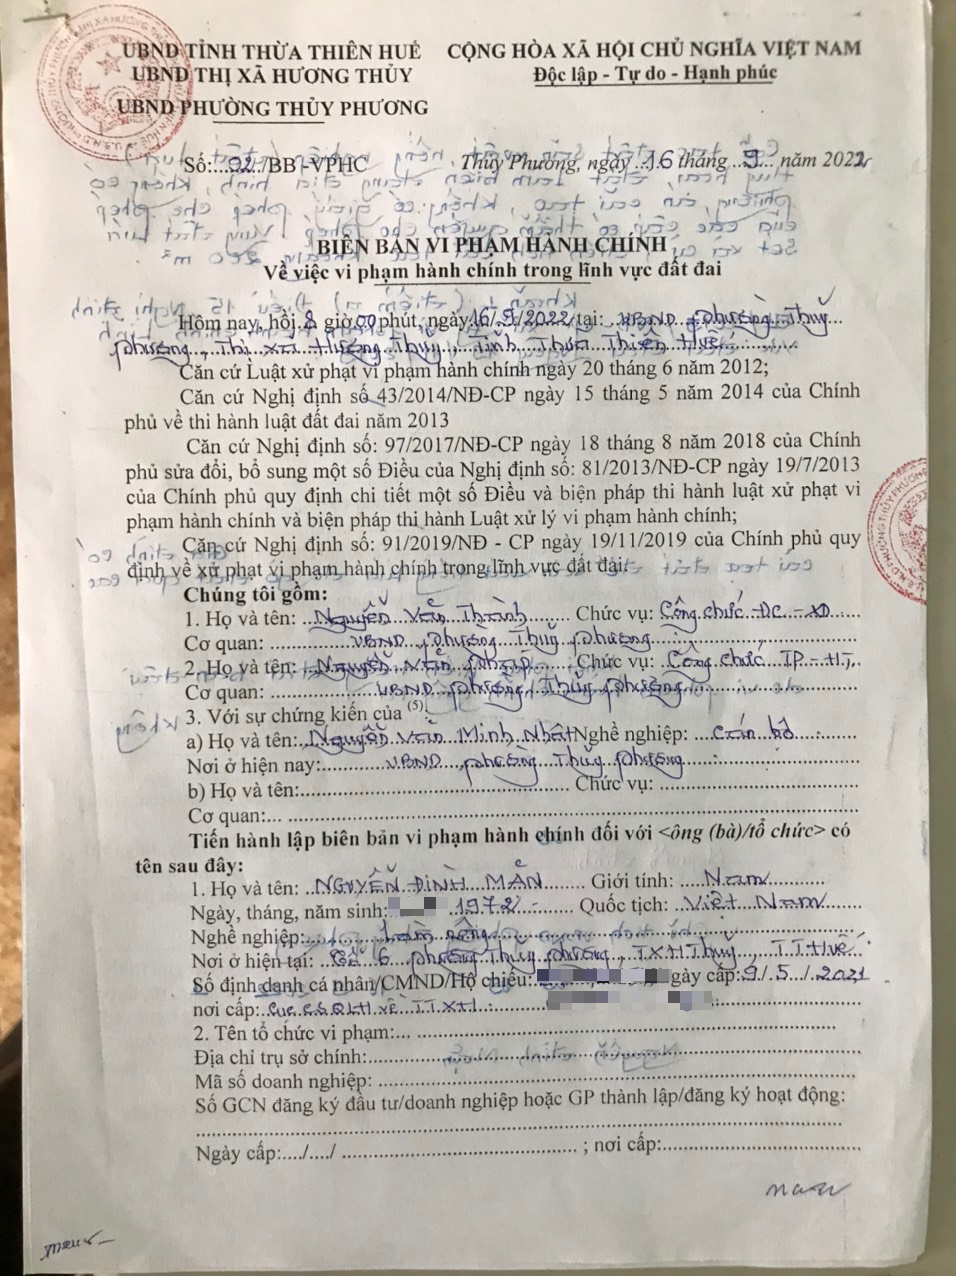 UBND TỈNH THỪA THIÊN HUẾ
UBND THỊ XÃ HƯƠNG THỦY
UBND PHƯỜNG THỦY PHƯƠNG
CỘNG HÒA XÃ HỘI CHỦ NGHĨA VIỆT NAM
Độc lập - Tự do - Hạnh phúc
Số:...02./BB -VPHC
Thủy Phương, ngày ..16 tháng ...9... năm 2022
BIÊN BẢN VI PHẠM HÀNH CHÍNH
Về việc vi phạm hành chính trong lĩnh vực đất đai
Hôm nay, hồi.8 giờ.00 phút, ngày 16/9/2022 tại: ..UBND phường Thủy
phương, Thị xã Hương Thủy, Tỉnh Thừa Thiên Huế
Căn cứ Luật xử phạt vi phạm hành chính ngày 20 tháng 6 năm 2012;
Căn cứ Nghị định số 43/2014/NĐ-CP ngày 15 tháng 5 năm 2014 của Chính
phủ về thi hành luật đất đai năm 2013
Căn cứ Nghị định số: 97/2017/NĐ-CP ngày 18 tháng 8 năm 2018 của Chính
phủ sửa đổi, bổ sung một số Điều của Nghị định số: 81/2013/NĐ-CP ngày 19/7/2013
của Chính phủ quy định chi tiết một số Điều và biện pháp thi hành luật xử phạt vi
phạm hành chính và biện pháp thi hành Luật xử lý vi phạm hành chính;
Căn cứ Nghị định số: 91/2019/NĐ - CP ngày 19/11/2019 của Chính phủ quy
định về xử phạt vi phạm hành chính trong lĩnh vực đất đai.
Chúng tôi gồm:
1. Họ và tên: Nguyễn Văn Thành Chức vụ: Công chức ĐC - XD
Cơ quan: UBND phường Thủy phương
2. Họ và tên: Nguyễn Chức vụ: Công chức TP - HT
Cơ quan: UBND phường Thủy phương
3. Với sự chứng kiến của (5):
a) Họ và tên: Nguyễn Văn Minh Nhật Nghề nghiệp: Cán bộ
Nơi ở hiện nay: UBND phường Thủy phương
b) Họ và tên: Chức vụ:
Cơ quan:...
Tiến hành lập biên bản vi phạm hành chính đối với <ông (bà)/tổ chức> có
tên sau đây:
1. Họ và tên: NGUYỄN ĐÌNH MẪN Giới tính: Nam
Ngày, tháng, năm sinh: 1972 Quốc tịch: Việt Nam
Nghề nghiệp: Làm nông
Nơi ở hiện tại: Tổ 6 phường Thủy phương, TX H Thủy, T T Huế
Số định danh cá nhân/CMND/Hộ chiếu: gày cấp: 9/.5./.2021
nơi cấp: Cục CSQLHC về TTXH
2. Tên tổ chức vi phạm:...
Địa chỉ trụ sở chính:
Mã số doanh nghiệp:
Số GCN đăng ký đầu tư/doanh nghiệp hoặc GP thành lập/đăng ký hoạt động:
Ngày cấp:..../..../ ; nơi cấp: